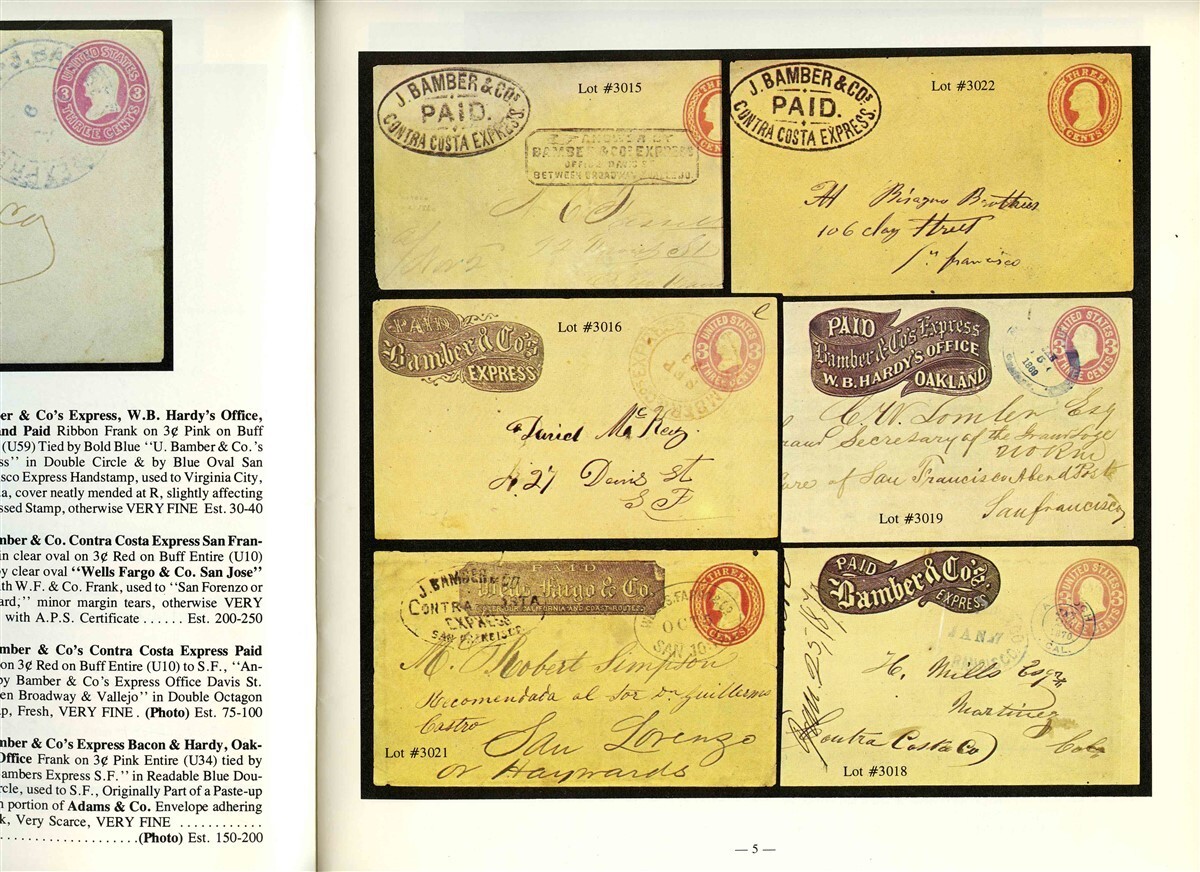 J. BA
UNITED STATES
3 3
THREE CENTS
er & Co's Express, W.B. Hardy's Office,
and Paid Ribbon Frank on 3¢ Pink on Buff
(U59) Tied by Bold Blue "U. Bamber & Co.'s
ss" in Double Circle & by Blue Oval San
isco Express Handstamp, used to Virginia City,
a, cover neatly mended at R, slightly affecting
ssed Stamp, otherwise VERY FINE Est. 30-40
mber & Co. Contra Costa Express San Fran-
in clear oval on 3¢ Red on Buff Entire (U10)
by clear oval "Wells Fargo & Co. San Jose"
th W.F. & Co. Frank, used to "San Forenzo or
ard;" minor margin tears, otherwise VERY
with A.P.S. Certificate ...... Est. 200-250
mber & Co's Contra Costa Express Paid
on 3¢ Red on Buff Entire (U10) to S.F., "An-
by Bamber & Co's Express Office Davis St.
en Broadway & Vallejo" in Double Octagon
p, Fresh, VERY FINE. (Photo) Est. 75-100
mber & Co's Express Bacon & Hardy, Oak-
Office Frank on 3¢ Pink Entire (U34) tied by
ambers Express S.F." in Readable Blue Dou-
rcle, used to S.F., Originally Part of a Paste-up
n portion of Adams & Co. Envelope adhering
k, Very Scarce, VERY FINE ............
(Photo) Est. 150-200
J. BAMBER & COS
PAID.
CONTRA COSTA EXPRESS.
Lot #3015
BAMBER & COS EXPRESS
OFFICE DAVIS ST
BETWEEN BROADWAY & VALLEJO.
J. BAMBER & COS
PAID.
CONTRA COSTA EXPRESS.
Lot #3022
THREE
CENTS
Bisagno Brothers
106 Clay Street
Sn francisco
PAID
Bamber & Co's
EXPRESS
Lot #3016
UNITED STATES
THREE CENTS
SEP
Daniel McKay
27 Davis St
S F
PAID
Bamber & Co's Express
W. B. HARDY'S OFFICE
OAKLAND
UNITED STATES
THREE CENTS
C. W. Esq
Grand Secretary of the Grand Loge
care of San Francisco Abend Post
San francisco
Lot #3019
PAID
Wells, Fargo & Co.
OVER OUR CALIFORNIA AND COAST ROUTES
J. BAMBER & CO
CONTRA COSTA
EXPRESS
SAN FRANCISCO
WELLS, FARGO & CO
OCT
SAN JOSE
CENTS
M. Robert Simpson
Recomendada al Sor Dn Guillermo
Castro
San Lorenzo
or Haywards
Lot #3021
PAID
Bamber & Co's
EXPRESS
JAN
1870
CAL.
H. Mills Esqr
Martinez
Contra Costa Co)
Lot #3018
— 5 —